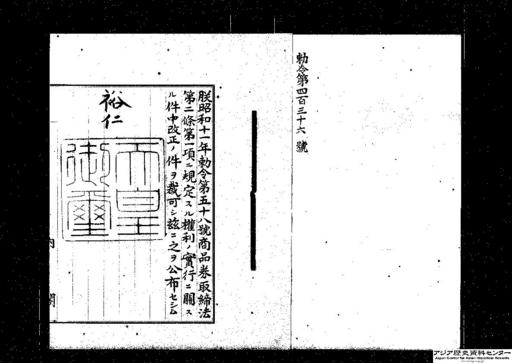 勅令第四百三十六號
朕昭和十一年勅令第五十八號商品券取締法
第二條第一項ニ規定スル權利ノ實行ニ關ス
ル件中改正ノ件ヲ裁可シ茲ニ之ヲ公布セシム
裕仁
天皇
御璽
内閣
アジア歴史資料センター
Japan Center for Asian Historical Records